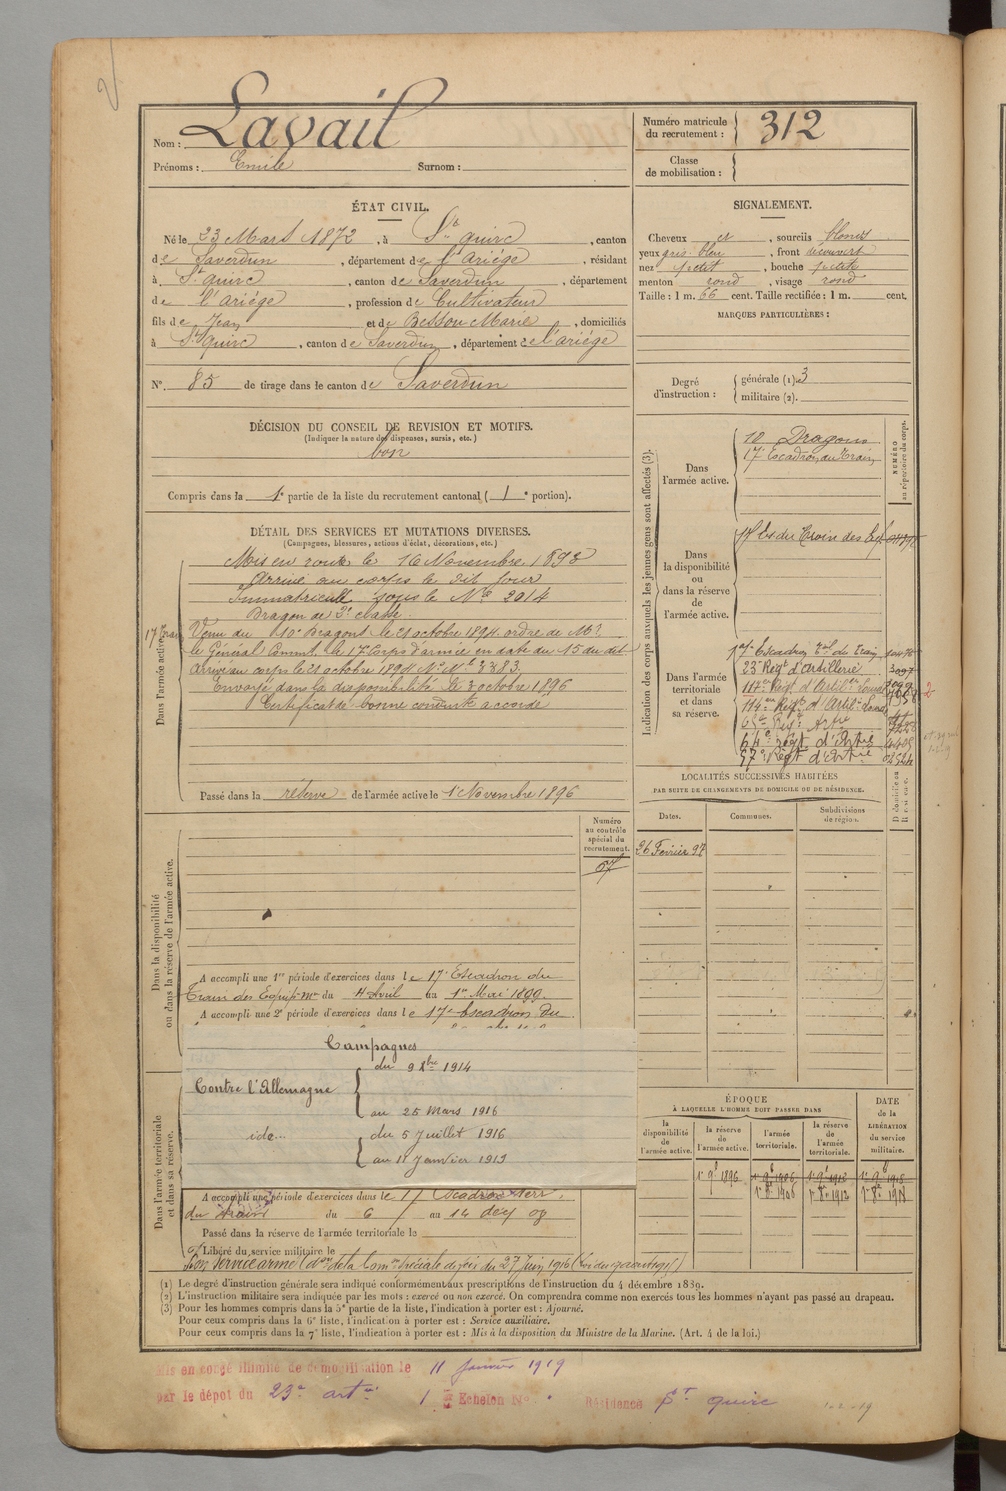 Nom : Lavail
Prénoms : Emile Surnom :
Numéro matricule du recrutement : 312
Classe de mobilisation :
ÉTAT CIVIL.
Né le 23 Mars 1872, à St quirc, canton
de Saverdun, département de l'ariége, résidant
à St quirc, canton de Saverdun, département
de l'ariége, profession de Cultivateur
fils de Jean et de Bessou Marie, domiciliés
à St quirc, canton de Saverdun, département de l'ariége
N°. 85 de tirage dans le canton de Saverdun
SIGNALEMENT.
Cheveux et, sourcils blonds
yeux gris bleu, front découvert
nez petit, bouche petite
menton rond, visage rond
Taille : 1 m. 66 cent. Taille rectifiée : 1 m. cent.
MARQUES PARTICULIÈRES :
Degré d'instruction : générale (1). 3
militaire (2).
DÉCISION DU CONSEIL DE REVISION ET MOTIFS.
(Indiquer la nature des dispenses, sursis, etc.)
bon
Compris dans la 1e partie de la liste du recrutement cantonal ( 1e portion).
DÉTAIL DES SERVICES ET MUTATIONS DIVERSES.
(Campagnes, blessures, actions d'éclat, décorations, etc.)
Dans l'armée active.
Mis en route le 16 Novembre 1893
Arrivé au corps le dit jour
Immatriculé sous le No 2014
Dragon de 2e classe.
Venu du 10e Dragons le 21 octobre 1894. ordre de Mr
le Général Commt le 17e Corps d'armée en date du 15 du dit
arrivé au corps le 21 octobre 1894 No Mle 3383.
Envoyé dans la disponibilité le 3 octobre 1896
Certificat de bonne conduite accordé
Passé dans la réserve de l'armée active le 1 Novembre 1896
Indication des corps auxquels les jeunes gens sont affectés (3).
NUMÉRO au répertoire du corps.
Dans l'armée active.
10 Dragons
17e Escadron du Train
Dans la disponibilité ou dans la réserve de l'armée active.
17 Es du Train des Eq
Dans l'armée territoriale et dans sa réserve.
17e Escadron Tal du Train
23e Regt d'Artillerie 3097
117e Regt d'Artilie Lourde
114e Regt d'Artil Lourde
65e Regt Artie
64e Regt d'Artie
57e Regt d'Artie
LOCALITÉS SUCCESSIVES HABITÉES
PAR SUITE DE CHANGEMENTS DE DOMICILE OU DE RÉSIDENCE.
Dates. Communes. Subdivisions de région.
26 Fevrier 97
Numéro au contrôle spécial du recrutement.
57
Dans la disponibilité ou dans la réserve de l'armée active.
A accompli une 1re période d'exercices dans le 17e Escadron du
Train des Equip. Mres du 4 Avril au 1er Mai 1899.
A accompli une 2e période d'exercices dans le 17e Escadron du
Campagnes
Contre l'Allemagne
du 9 8bre 1914
au 25 Mars 1916
du 5 Juillet 1916
au 11 Janvier 1919
Dans l'armée territoriale et dans sa réserve.
A accompli une période d'exercices dans le 17 Escadron terr.
du train du 6 au 14 dec 08
Passé dans la réserve de l'armée territoriale le
Libéré du service militaire le
ÉPOQUE
À LAQUELLE L'HOMME DOIT PASSER DANS
la disponibilité de l'armée active.
la réserve de l'armée active.
l'armée territoriale.
la réserve de l'armée territoriale.
DATE de la LIBÉRATION du service militaire.
1er 9b 1896
(1) Le degré d'instruction générale sera indiqué conformément aux prescriptions de l'instruction du 4 décembre 1889.
(2) L'instruction militaire sera indiquée par les mots : exercé ou non exercé. On comprendra comme non exercés tous les hommes n'ayant pas passé au drapeau.
(3) Pour les hommes compris dans la 5e partie de la liste, l'indication à porter est : Ajourné.
Pour ceux compris dans la 6e liste, l'indication à porter est : Service auxiliaire.
Pour ceux compris dans la 7e liste, l'indication à porter est : Mis à la disposition du Ministre de la Marine. (Art. 4 de la loi.)
Mis en congé illimité de démobilisation le 11 Janvier 1919
par le dépôt du 23e artie 1 Echelon No Résidence St quirc